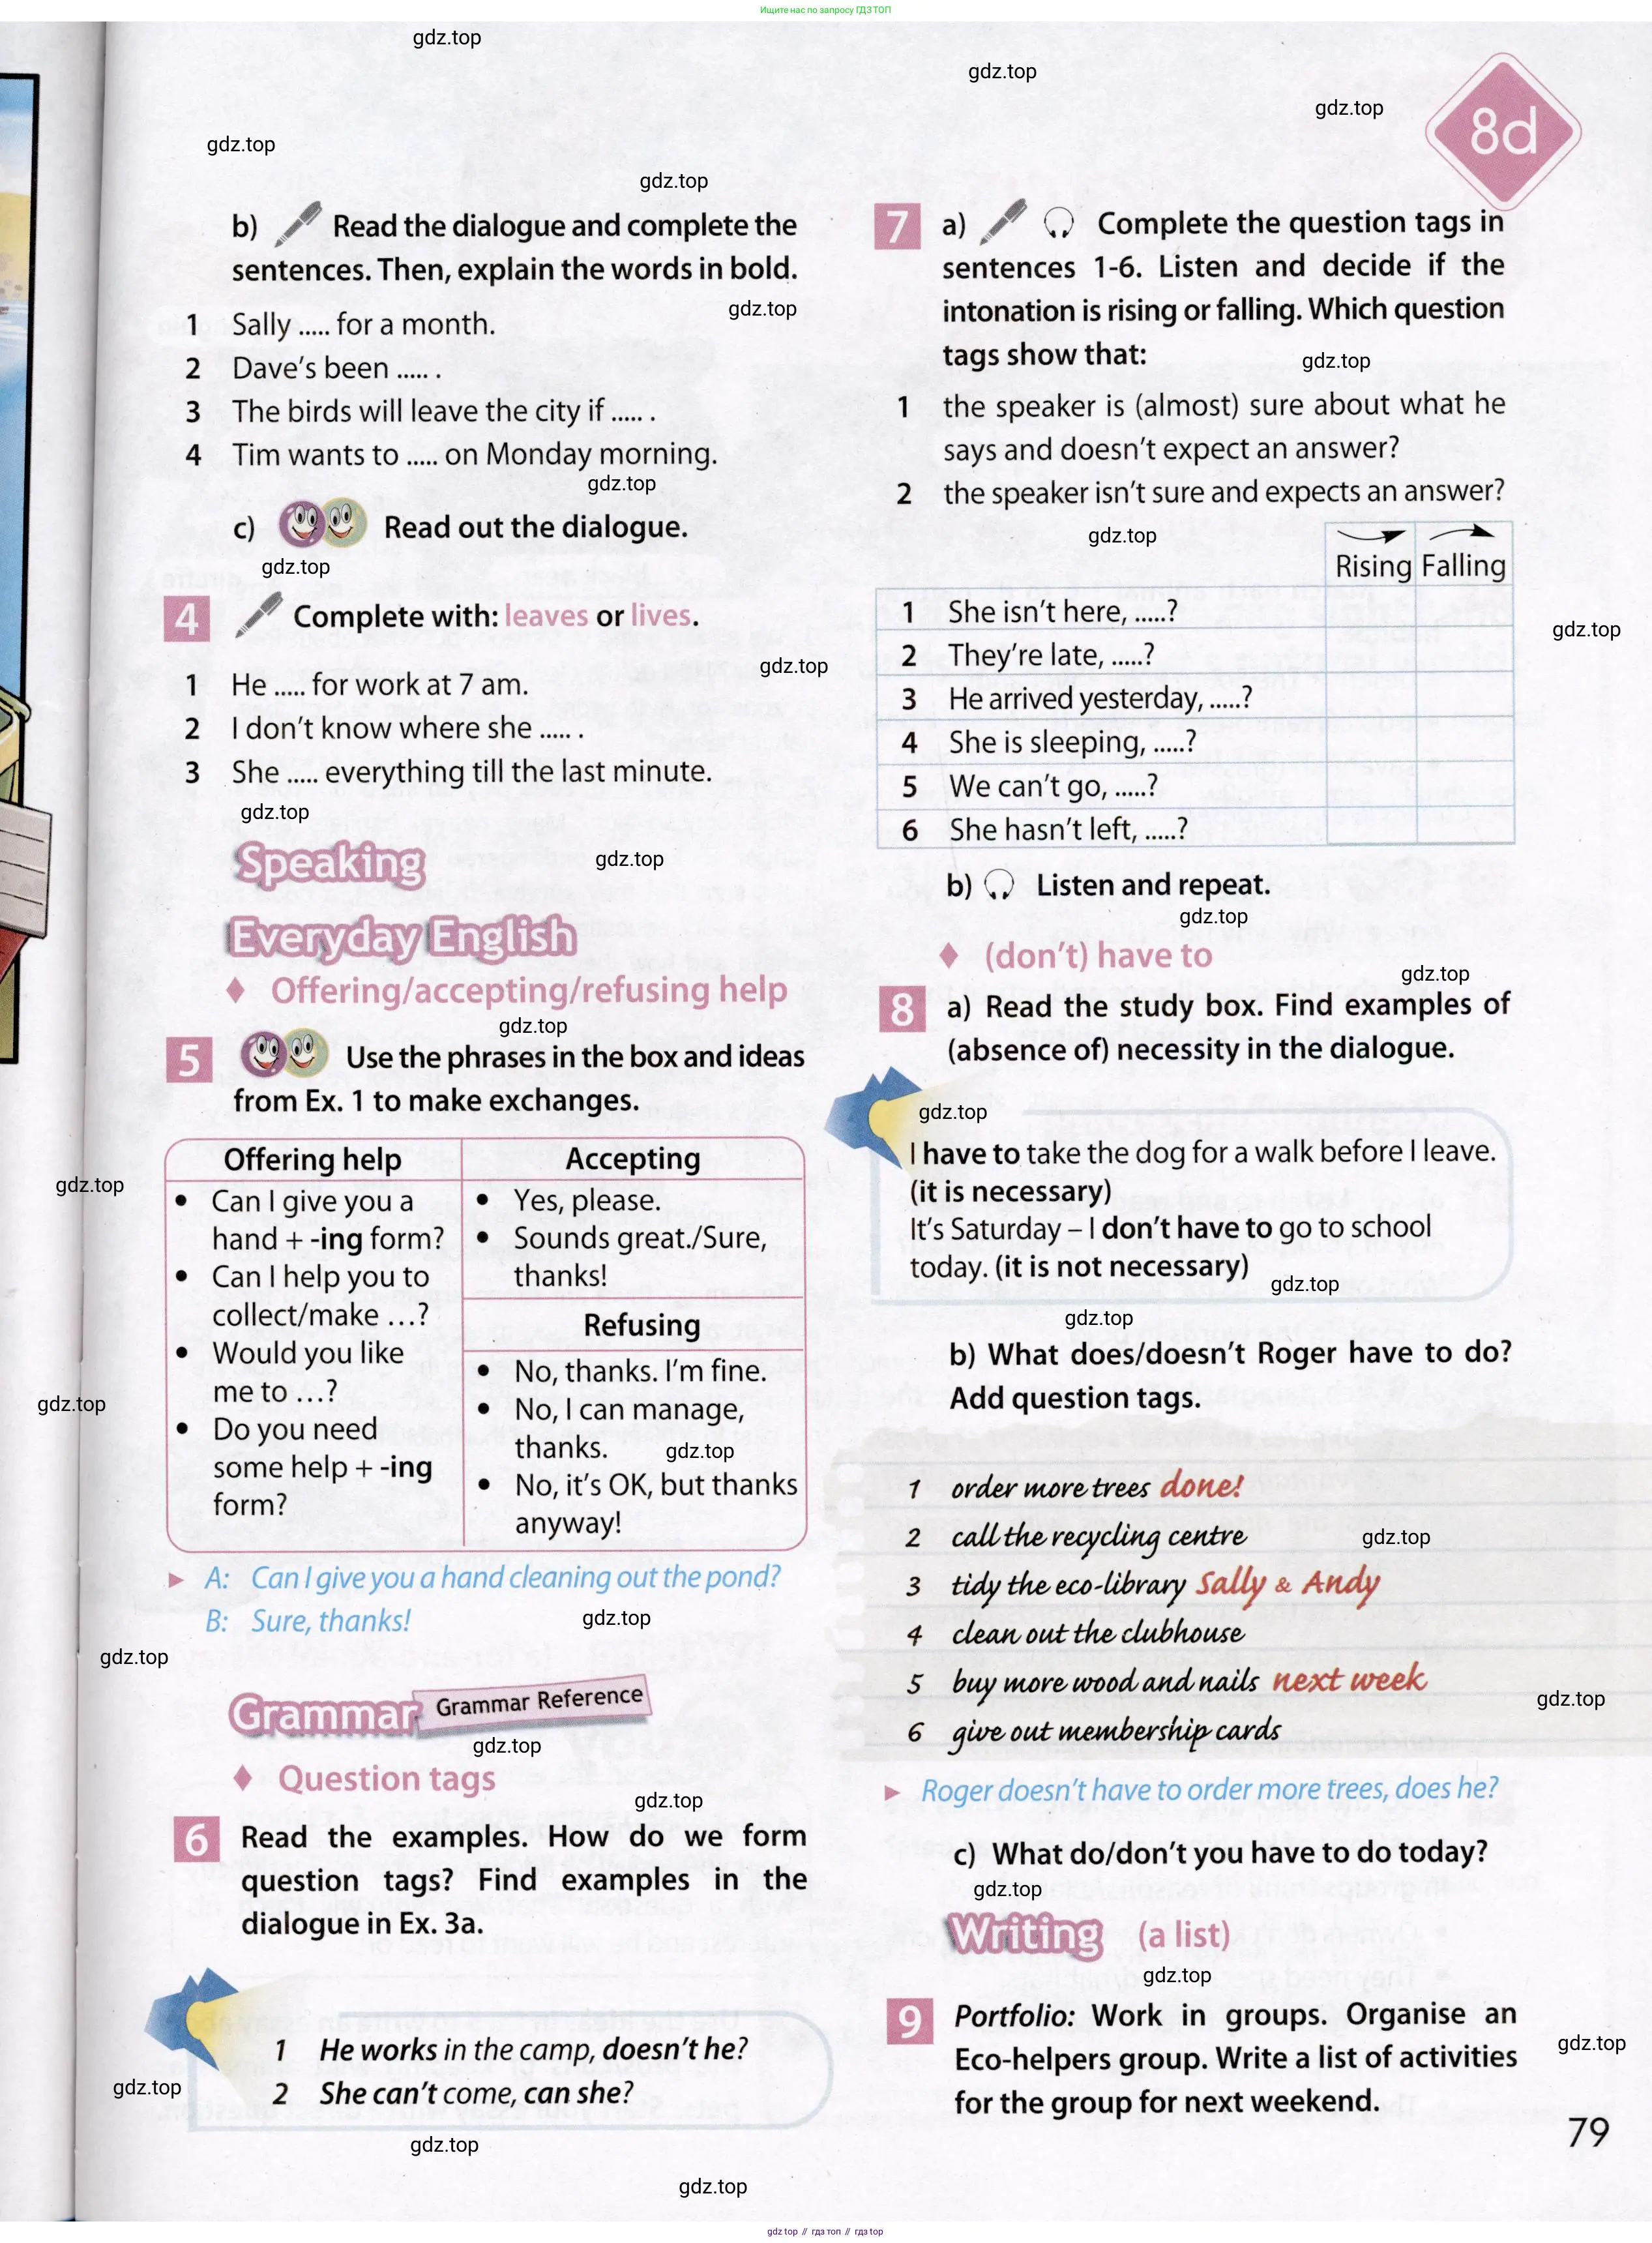 Ищите нас по запросу ГДЗ ТОП
gdz.top
gdz.top
gdz.top
8d
gdz.top
gdz.top
b) Read the dialogue and complete the
sentences. Then, explain the words in bold.
gdz.top
1 Sally ..... for a month.
2 Dave's been ..... .
3 The birds will leave the city if ..... .
4 Tim wants to ..... on Monday morning.
gdz.top
c) Read out the dialogue.
gdz.top
4 Complete with: leaves or lives.
gdz.top
1 He ..... for work at 7 am.
2 I don't know where she ..... .
3 She ..... everything till the last minute.
gdz.top
Speaking
gdz.top
Everyday English
♦ Offering/accepting/refusing help
gdz.top
5 Use the phrases in the box and ideas
from Ex. 1 to make exchanges.
Offering help
• Can I give you a
hand + -ing form?
• Can I help you to
collect/make ...?
• Would you like
me to ...?
• Do you need
some help + -ing
form?
Accepting
• Yes, please.
• Sounds great./Sure,
thanks!
Refusing
• No, thanks. I'm fine.
• No, I can manage,
thanks.
gdz.top
• No, it's OK, but thanks
anyway!
gdz.top
gdz.top
► A: Can I give you a hand cleaning out the pond?
B: Sure, thanks!
gdz.top
gdz.top
Grammar Grammar Reference
gdz.top
♦ Question tags
gdz.top
6 Read the examples. How do we form
question tags? Find examples in the
dialogue in Ex. 3a.
1 He works in the camp, doesn't he?
2 She can't come, can she?
gdz.top
gdz.top
gdz.top
7 a) Complete the question tags in
sentences 1-6. Listen and decide if the
intonation is rising or falling. Which question
tags show that:
gdz.top
1 the speaker is (almost) sure about what he
says and doesn't expect an answer?
2 the speaker isn't sure and expects an answer?
gdz.top
Rising Falling
1 She isn't here, .....?
gdz.top
2 They're late, .....?
3 He arrived yesterday, .....?
4 She is sleeping, .....?
5 We can't go, .....?
6 She hasn't left, .....?
b) Listen and repeat.
gdz.top
♦ (don't) have to
gdz.top
8 a) Read the study box. Find examples of
(absence of) necessity in the dialogue.
gdz.top
I have to take the dog for a walk before I leave.
(it is necessary)
It's Saturday – I don't have to go to school
today. (it is not necessary)
gdz.top
gdz.top
b) What does/doesn't Roger have to do?
Add question tags.
1 order more trees done!
2 call the recycling centre
gdz.top
3 tidy the eco-library Sally & Andy
4 clean out the clubhouse
5 buy more wood and nails next week
gdz.top
6 give out membership cards
► Roger doesn't have to order more trees, does he?
c) What do/don't you have to do today?
gdz.top
Writing (a list)
gdz.top
9 Portfolio: Work in groups. Organise an
Eco-helpers group. Write a list of activities
for the group for next weekend.
gdz.top
79
gdz top // гдз топ // гдз top